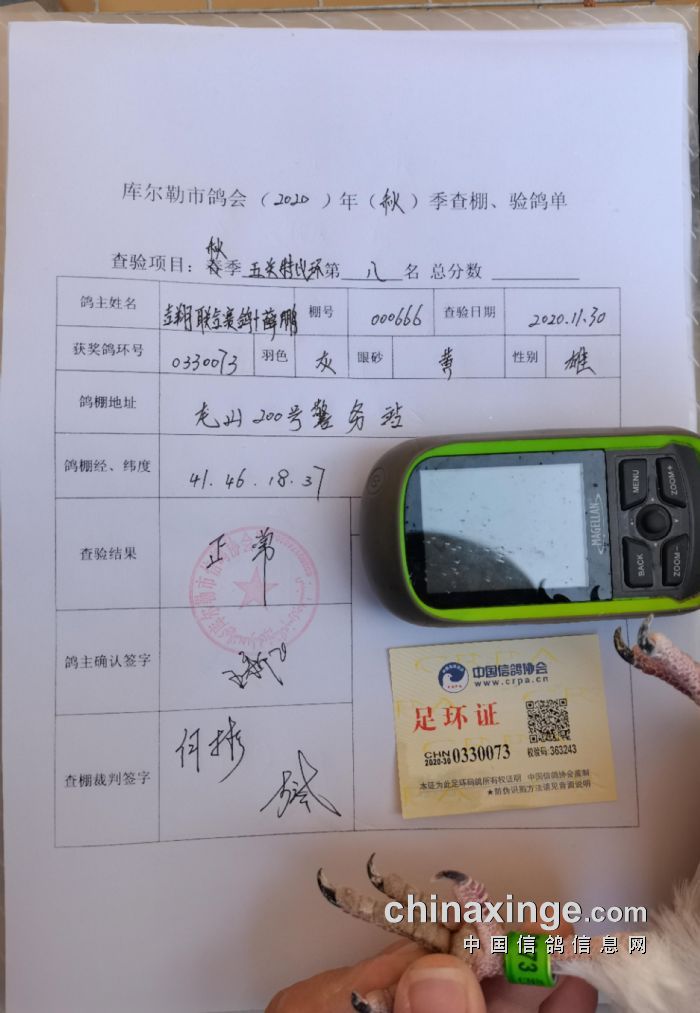 库尔勒市鸽会（2020）年（秋）季查棚、验鸽单
秋
查验项目：春季 五关特比环 第 八 名 总分数
鸽主姓名 翔联合赛鸽 薛鹏 棚号 000666 查验日期 2020.11.30
获奖鸽环号 0330073 羽色 灰 眼砂 黄 性别 雄
鸽棚地址 龙山200号警务站
鸽棚经、纬度 41.46.18.37
查验结果 正常
鸽主确认签字
查棚裁判签字 何彬
库尔勒市信鸽协会
MENU
ZOOM+
MAGELLAN
BACK
ZOOM-
中国信鸽协会
www.crpa.cn
足环证
CHN
2020-30 0330073
校验码:363243
本证为此足环码鸽所有权证明 中国信鸽协会监制
★防伪识别方法请见背面说明
73
CHN
chinaxinge.com
中国信鸽信息网